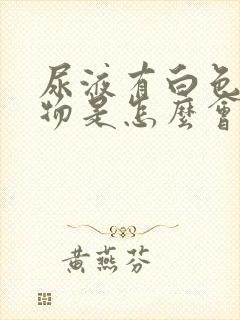 尿液有白色
物是怎麼會
黃燕芬